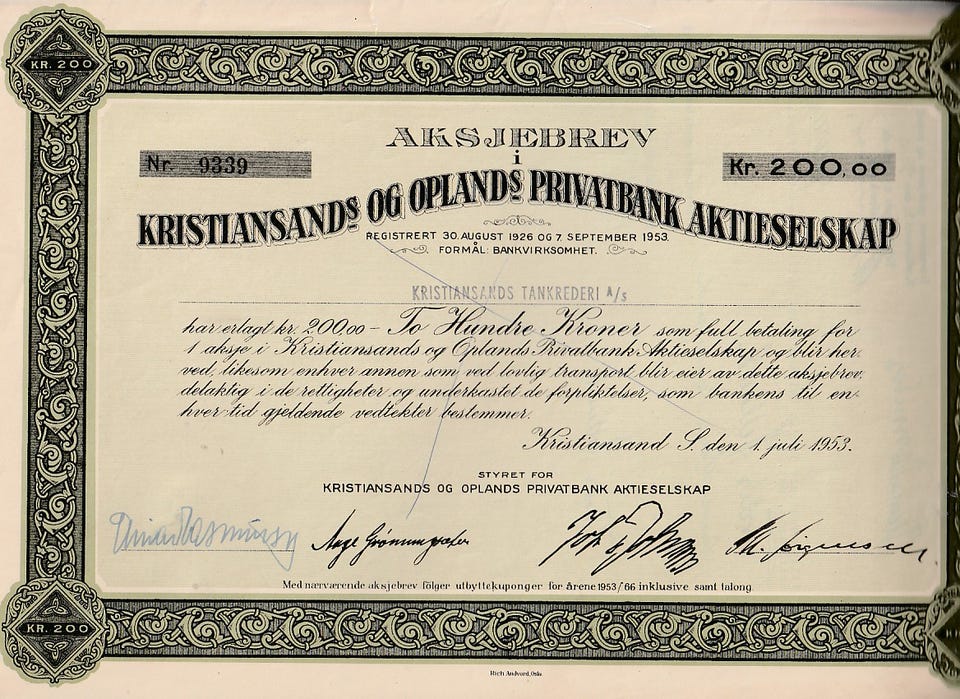 KR. 200
AKSJEBREV
i
Nr. 9339
Kr. 200,00
KRISTIANSANDS OG OPLANDS PRIVATBANK AKTIESELSKAP
REGISTRERT 30. AUGUST 1926 OG 7. SEPTEMBER 1953.
FORMÅL: BANKVIRKSOMHET.
KRISTIANSANDS TANKREDERI A/s
har erlagt kr. 200.00 – To Hundre Kroner som full betaling for
1 aksje i Kristiansands og Oplands Privatbank Aktieselskap og blir her-
ved, likesom enhver annen som ved lovlig transport blir eier av dette aksjebrev,
delaktig i de rettigheter og underkastet de forpliktelser, som bankens til en-
hver tid gjeldende vedtekter bestemmer.
Kristiansand S. den 1. juli 1953.
STYRET FOR
KRISTIANSANDS OG OPLANDS PRIVATBANK AKTIESELSKAP
Med nærværende aksjebrev følger utbyttekuponger for årene 1953/66 inklusive samt talong.
KR. 200
Rich. Andvord, Oslo